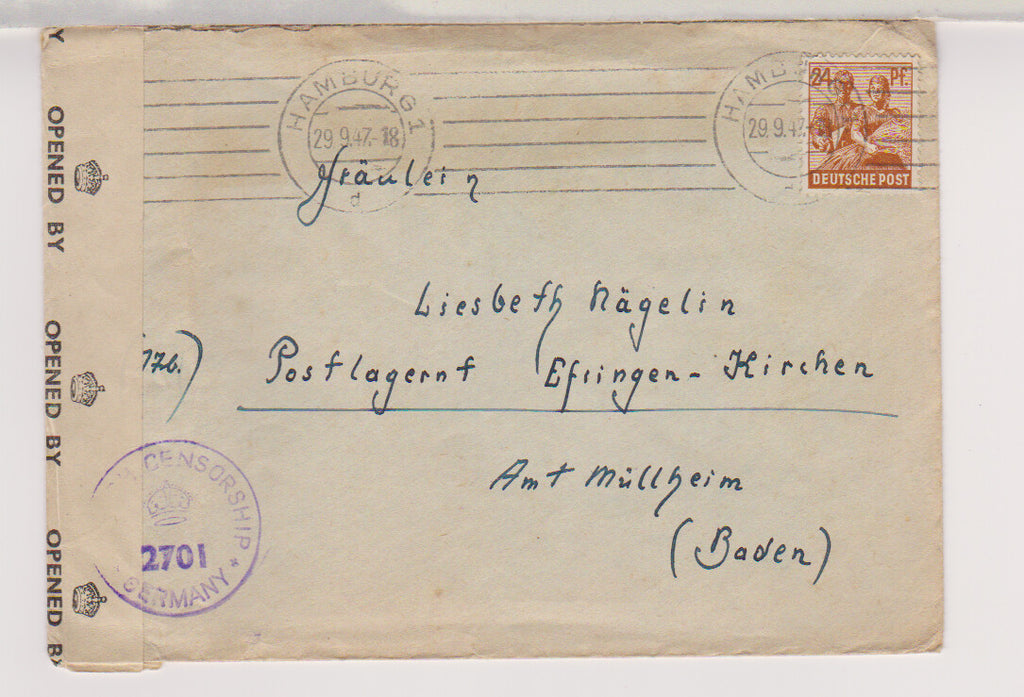 Y
OPENED BY
OPENED BY
OPENED BY
HAMBURG 1
29.9.47.-18
d
HAMB
29.9.47.
24 Pf.
DEUTSCHE POST
Fräulein
Liesbeth Nägelin
Postlagernt Efringen-Kirchen
Amt Müllheim
(Baden)
CENSORSHIP
2701
GERMANY *